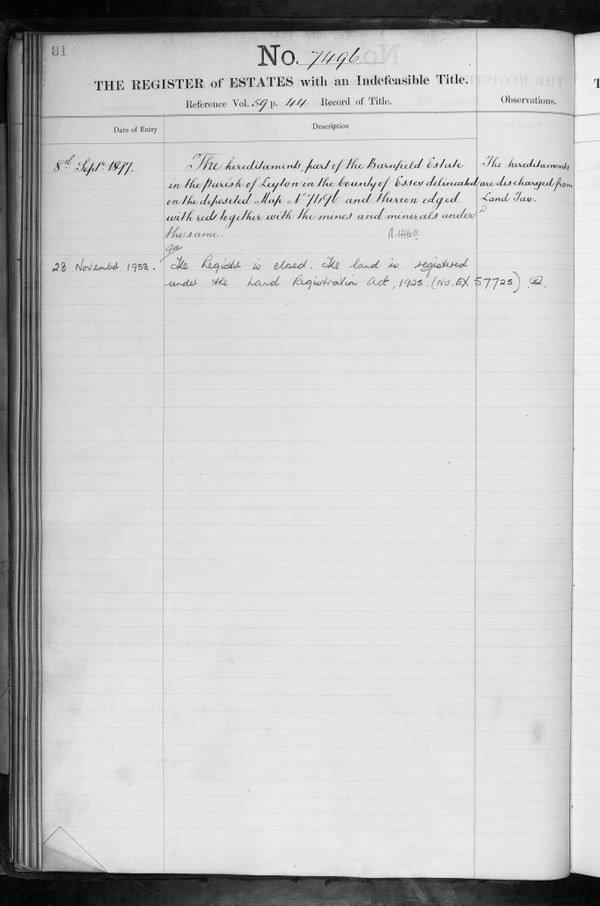 81
No. 7496
THE REGISTER of ESTATES with an Indefeasible Title.
Reference Vol. 59 p. 44 Record of Title.
Observations.
Date of Entry
Description
8th Septr 1877.
The hereditaments, part of the Barnfield Estate
in the Parish of Leyton in the County of Essex delineated
on the deposited Map No 7496 and thereon edged
with red together with the mines and minerals under
the same.
The hereditaments
are discharged from
Land Tax.
28 November 1958.
The Register is closed. The land is registered
under the Land Registration Act, 1925. (No. EX 57725)